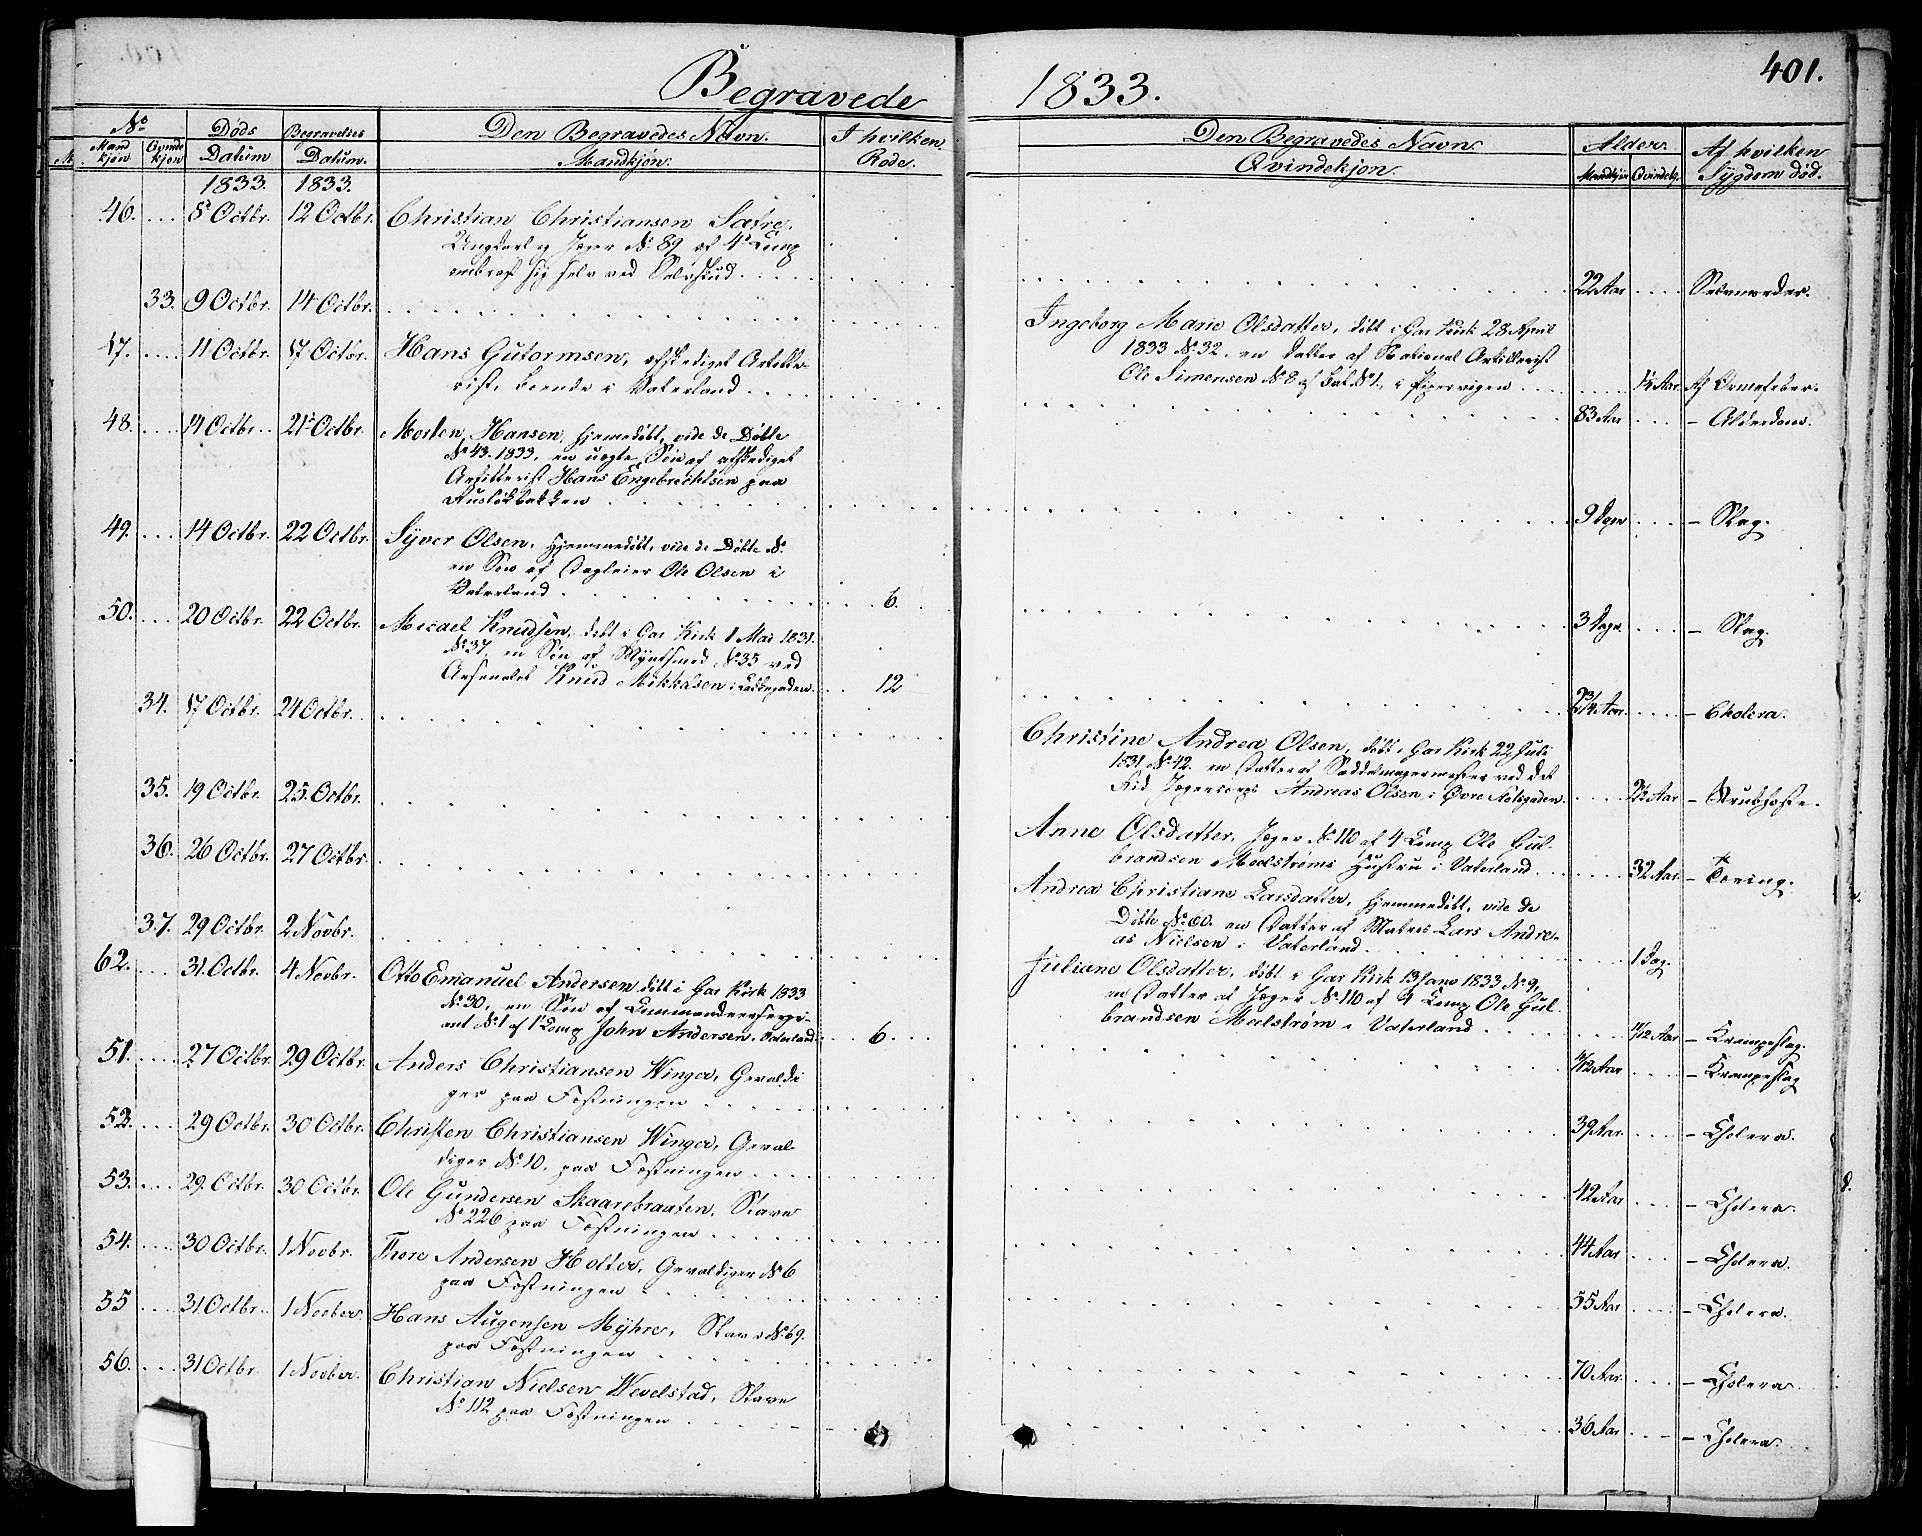 Begravede 1833.
401.
No
Mand kjøn
Qvinde kjøn
Døds Datum
Begravelses Datum.
Den Begravedes Navn.
Mandkjøn:
I hvilken Rode.
Den Begravedes Navn
Qvindekjøn.
Alder.
Mandkjøn
Qvindekj.
Af hvilken Sygdom død.
1833. 1833.
46. 8 Octbr. 12 Octbr. Christian Christiansen Sætre,
Ungkarl og Jæger No 89 af 4de Comp
ombragt sig selv ved Selvskud
22 Aar Selvmorder.
33. 9 Octbr. 14 Octbr.
Ingeborg Marie Olsdatter, døbt i Gar Kirk 28 April
1833 No 32. en Datter af National Artillerist
Ole Simensen No 8 af Bat. No 1, i Pipervigen
½ Aar Af Ormefeber.
47. 11 Octbr. 17 Octbr. Hans Gutormsen, afskediget Artille-
rist, boende i Vaterland
83 Aar – Alderdom.
48. 14 Octbr. 21 Octbr. Morten Hansen, hjemedøbt, vide de Døbte
No 43. 1833, en uægte Søn af afskediget
Artillerist Hans Engebrechtsen paa
Ruseløkbakken
9 Dage – Slag.
49. 14 Octbr. 22 Octbr. Syver Olsen, hjemmedøbt, vide de Døbte No
en Søn af Dagleier Ole Olsen i
Vaterland 6.
3 Dage. – Slag.
50. 20 Octbr. 22 Octbr. Micael Knudsen, døbt i Gar Kirk 1 Mai 1831.
No 37. en Søn af Myntsmed No 35 ved
Arsenalet Knud Mikkelsen i Lakkegaden 12
2¾ Aar. – Cholera.
34. 17 Octbr. 24 Octbr.
Christine Andrea Olsen, døbt i Gar Kirk 22 Juli
1831 No 42. en Datter af Saddelmagermester ved det
Rid Jægercorps Andreas Olsen i Øvre Slotsgaden
2¼ Aar – Strubhoste.
35. 19 Octbr. 25. Octbr.
Anne Olsdatter, Jæger No 110 af 4 Comp Ole Gul-
brandsen Mælstrøms Hustru i Vaterland
32 Aar – Tæring.
36. 26 Octbr. 27 Octbr.
Andrea Christiane Larsdatter, hjemmedøbt, vide de
Døbte No 60. en Datter af Matros Lars Andre-
as Nielsen i Vaterland
1 Dag.
37. 29 Octbr. 2 Novbr.
Juliane Olsdatter, døbt i Gar Kirk 13 Jano 1833 No 9,
en Datter af Jæger No 110 af 4 Comp Ole Gul-
brandsen Mælstrøm i Vaterland
– Krampeslag.
62. 31. Octbr. 4 Novbr. Otto Emanuel Andersen døbt i Gar Kirk 1833
No 30, en Søn af Commandeersergi-
ant No 1 af 1 Comp John Andersen. Vaterland 6.
– Krampeslag
51. 27 Octbr. 29 Octbr. Anders Christiansen Winger, Gevaldi
ger paa Fæstningen
39 Aar. – Cholera.
52. 29 Octbr. 30 Octbr. Christen Christiansen Winger, Geval-
diger No 10, paa Fæstningen
42 Aar – Cholera.
53. 29. Octbr. 30 Octbr. Ole Gundersen Skaarebraaten, Slave
No 226 paa Fæstningen
44 Aar – Cholera.
54. 30 Octbr. 1 Novbr. Thore Andersen Holter, Gevaldiger No 6
paa Fæstningen
55 Aar – Cholera.
55 31. Octbr. 1 Novber. Hans Augensen Myhre, Slave No 69.
paa Fæstningen
70 Aar. – Cholera.
56. 31 Octbr. 1 Novber. Christian Nielsen Wevelstad, Slave
No 112 paa Fæstningen
36 Aar – Cholera.